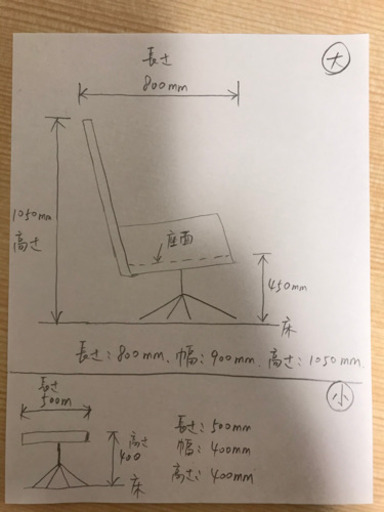 大
長さ
800mm
1050mm
高さ
座面
450mm
床
長さ:800mm、幅:900mm、高さ:1050mm
小
長さ
500m
高さ
400
床
長さ:500mm
幅:400mm
高さ:400mm